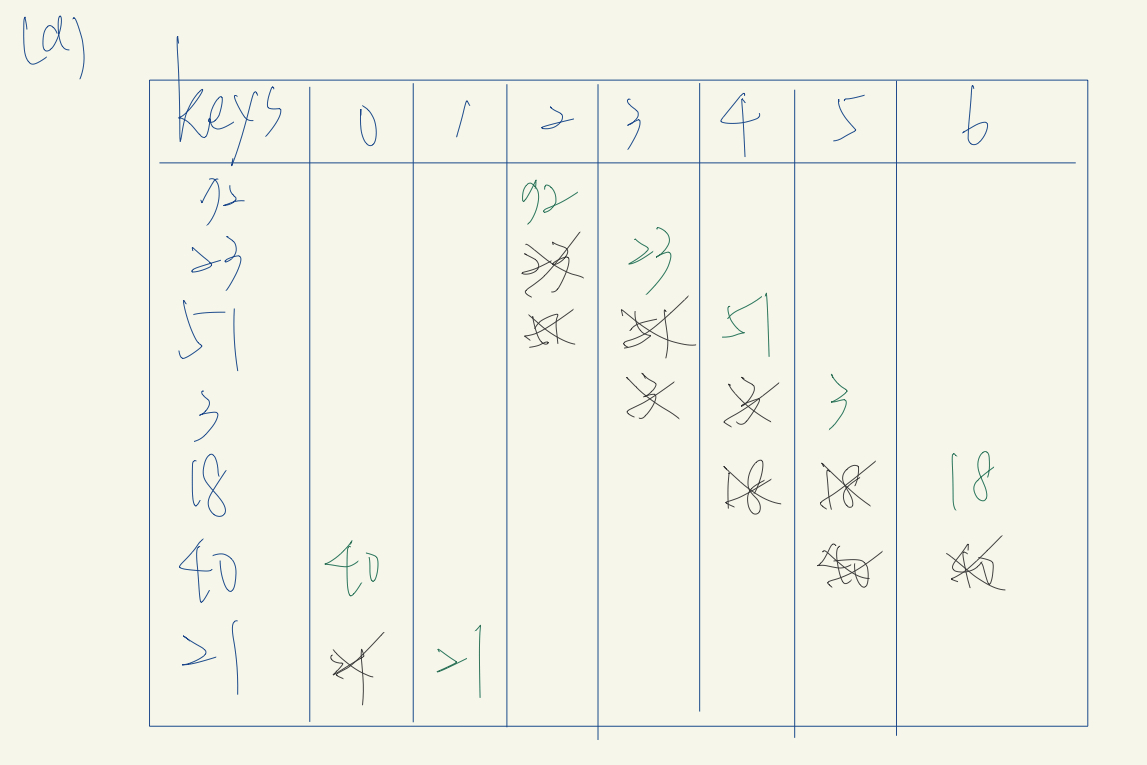 (d)
keys 0 1 2 3 4 5 6
92 92
23 23 23
51 51 51 51
3 3 3 3
18 18 18 18
40 40 40 40
21 21 21